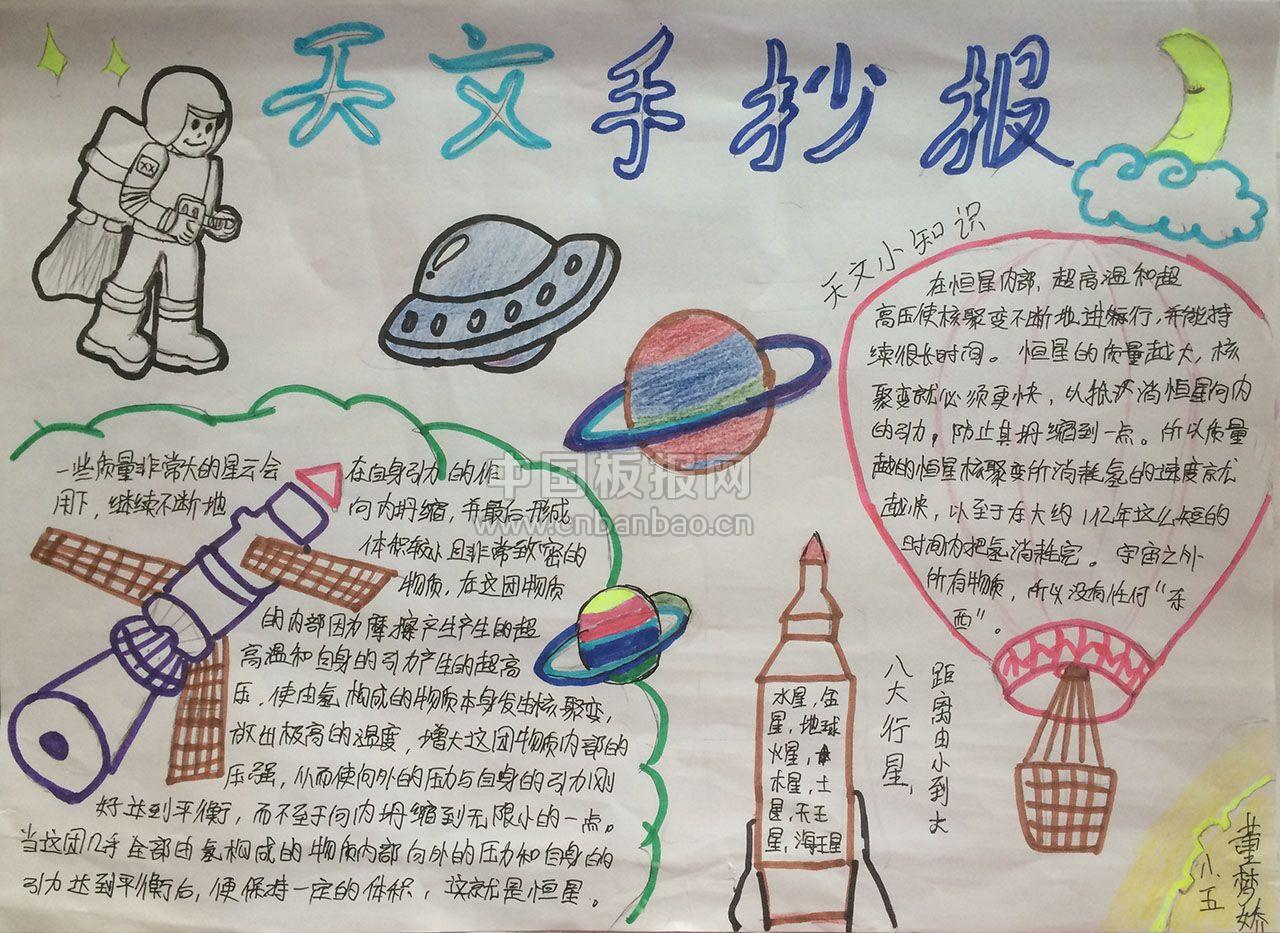 天文手抄报
天文小知识
在恒星内部,超高温和超
高压使核聚变不断地进行,并能持
续很长时间。恒星的质量越大,核
聚变就必须更快,以抵消恒星向内
的引力,防止其坍缩到一点。所以质量
越的恒星核聚变所消耗氢的速度就
越快,以至于在大约1亿年这么短的
时间内把氢消耗完。宇宙之外
所有物质,所以没有任何“东
西”。
中国板报网
www.cnbanbao.cn
一些质量非常大的星云会在自身引力的作
用下,继续不断地向内坍缩,并最后形成
体积较小且非常致密的
物质,在这团物质
的内部因为摩擦产生产生的超
高温和自身的引力产生的超高
压,使由氢构成的物质本身发生核聚变,
放出极高的温度,增大这团物质内部的
压强,从而使向外的压力与自身的引力刚
好达到平衡,而不至于向内坍缩到无限小的一点。
当这团几乎全部由氢构成的物质内部向外的压力和自身的
引力达到平衡后,便保持一定的体积,这就是恒星。
水星,金
星,地球
火星,
木星,土
星,天王
星,海王星
八大行星,
距离由小到大
董梦娇
小五